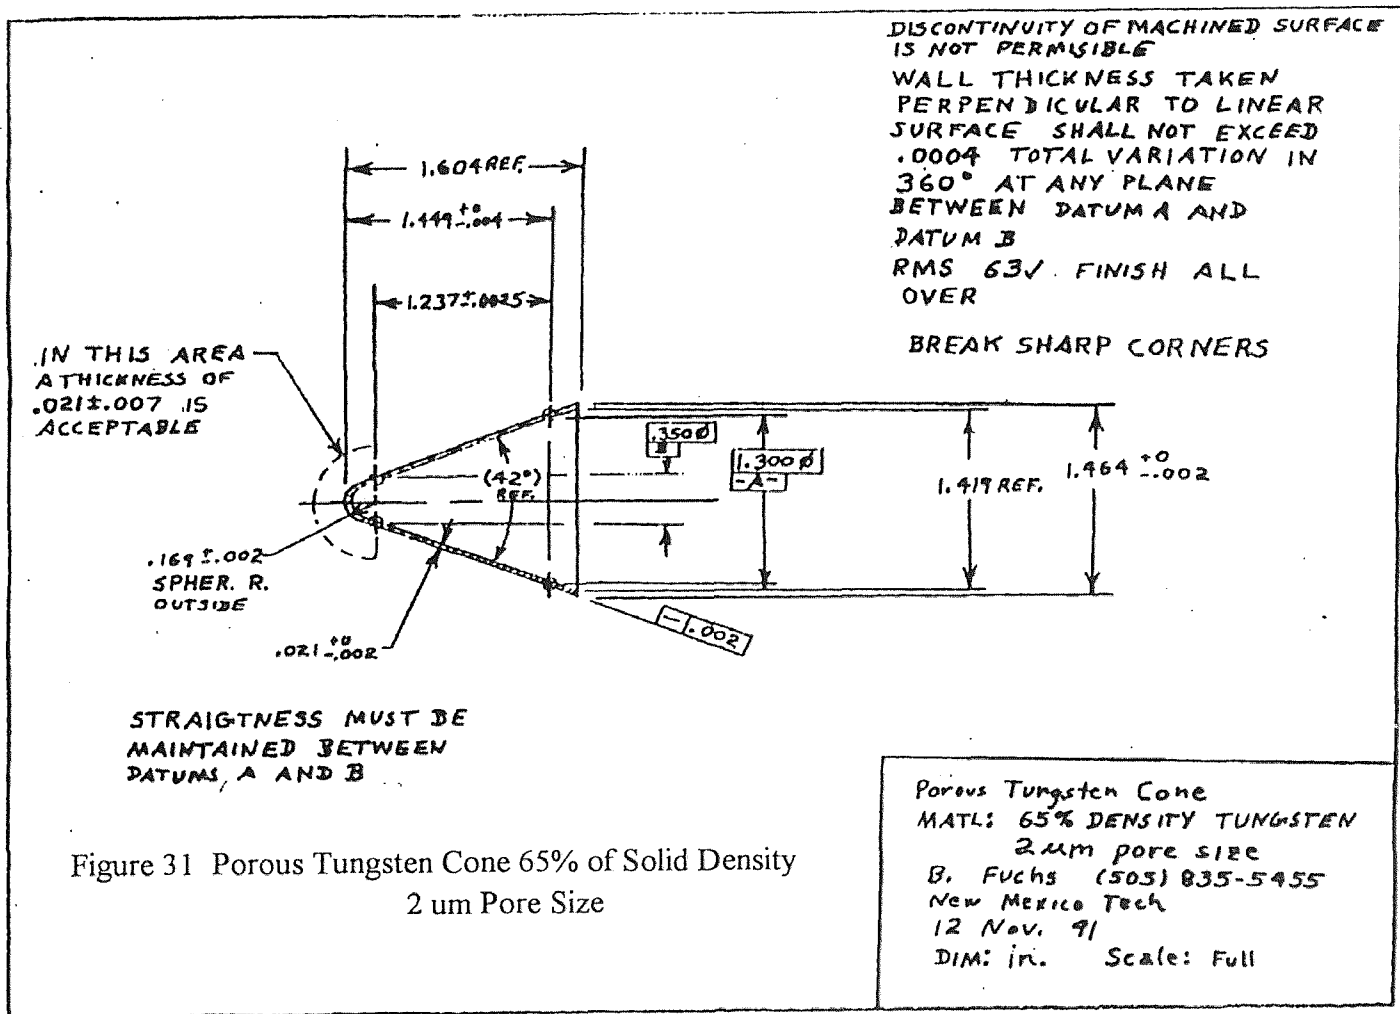 DISCONTINUITY OF MACHINED SURFACE
IS NOT PERMISIBLE
WALL THICKNESS TAKEN
PERPENDICULAR TO LINEAR
SURFACE SHALL NOT EXCEED
.0004 TOTAL VARIATION IN
360° AT ANY PLANE
BETWEEN DATUM A AND
DATUM B
RMS 63√ FINISH ALL
OVER
BREAK SHARP CORNERS
1.604 REF.
1.449 +0 -.004
1.237±.0025
IN THIS AREA
A THICKNESS OF
.021±.007 IS
ACCEPTABLE
.350 Ø
(42°)
REF.
1.300 Ø
-A-
1.419 REF.
1.464 +0 -.002
.169 ±.002
SPHER. R.
OUTSIDE
.021 +0 -.002
— .002
STRAIGTNESS MUST BE
MAINTAINED BETWEEN
DATUMS, A AND B
Figure 31 Porous Tungsten Cone 65% of Solid Density
2 um Pore Size
Porous Tungsten Cone
MATL: 65% DENSITY TUNGSTEN
2 um pore size
B. Fuchs (505) 835-5455
New Mexico Tech
12 Nov. 91
DIM: in. Scale: Full